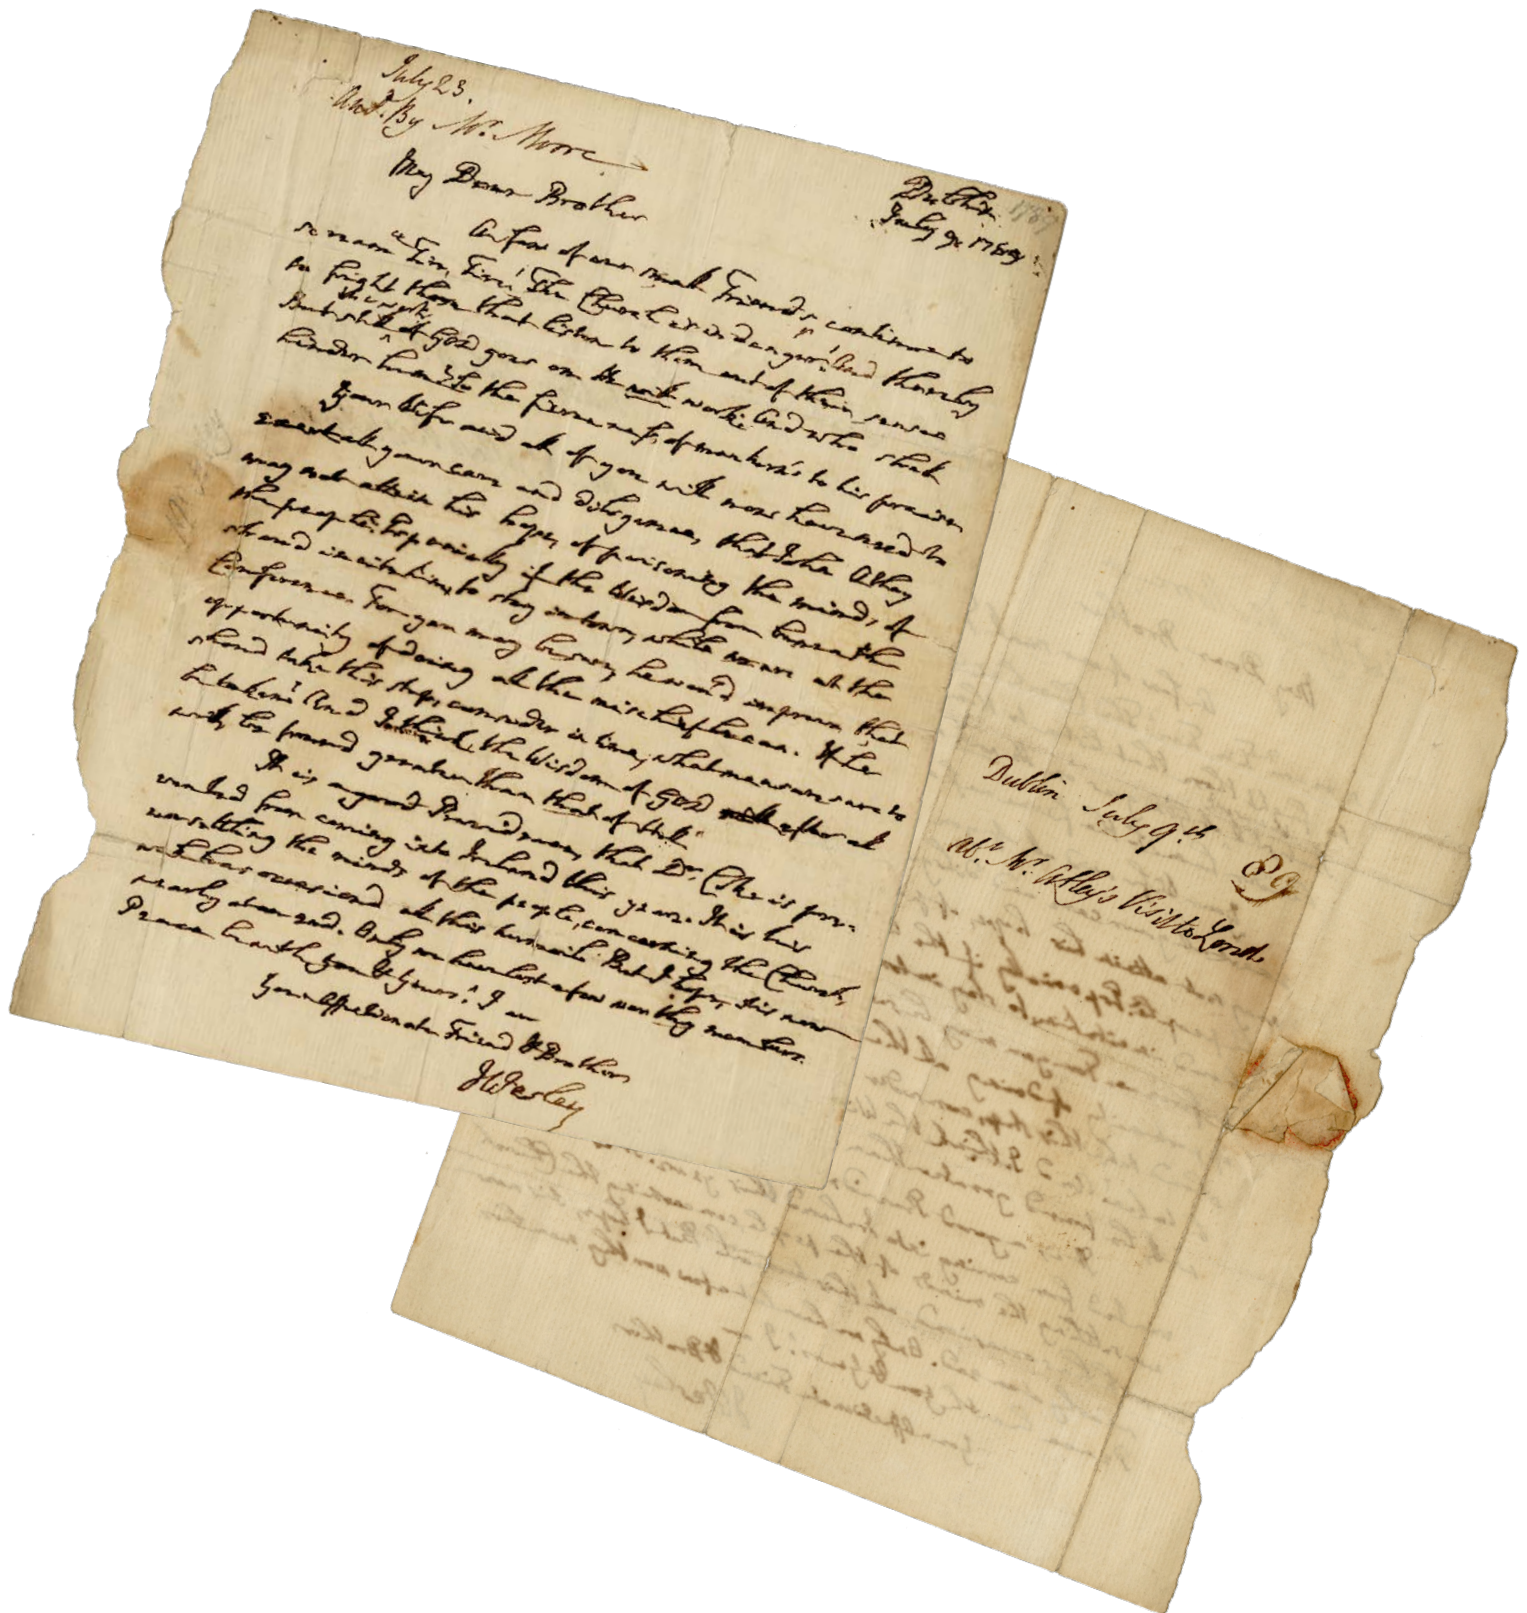 July 23.
Answd. By Mr. Moore
Dublin
July 9. 1789
My Dear Brother
A few of our weak Friends, continue to
scream "Fire, Fire! The Church is in danger!" And thereby
to fright them that listen to them out of their senses
But still the work of GOD goes on: He will work: And who shall
hinder him? So the fierceness of man turns to his praise
Your Wife and all of you will now have need to
exert all your care and diligence, that John Atlay
may not attain his hope, of poisoning the minds, of
the people: Especially if the Wisdom from beneath
should incite him, to stay in town, while we are at the
Conference. For you may be sure, he would improve that
opportunity of doing all the mischief he can. If he
should take this step, consider in time, what measures are to
be taken! And I think, the Wisdom of GOD will after all
will, be found greater than that of Hell.
It is a good Providence, that Dr. Coke is pre-
vented from coming into Ireland this year. It is his
unsettling the minds of the people, concerning the Church,
wch. has occasiond all this turmoil: But I hope, it is now
nearly at an end. Only we have lost a few worthy members.
Peace be with you & Yours! I am
Your Affectionate Friend & Brother
JWesley
Dublin July 9th
89
Abt. Mr. Atlay's Visit to Lond.